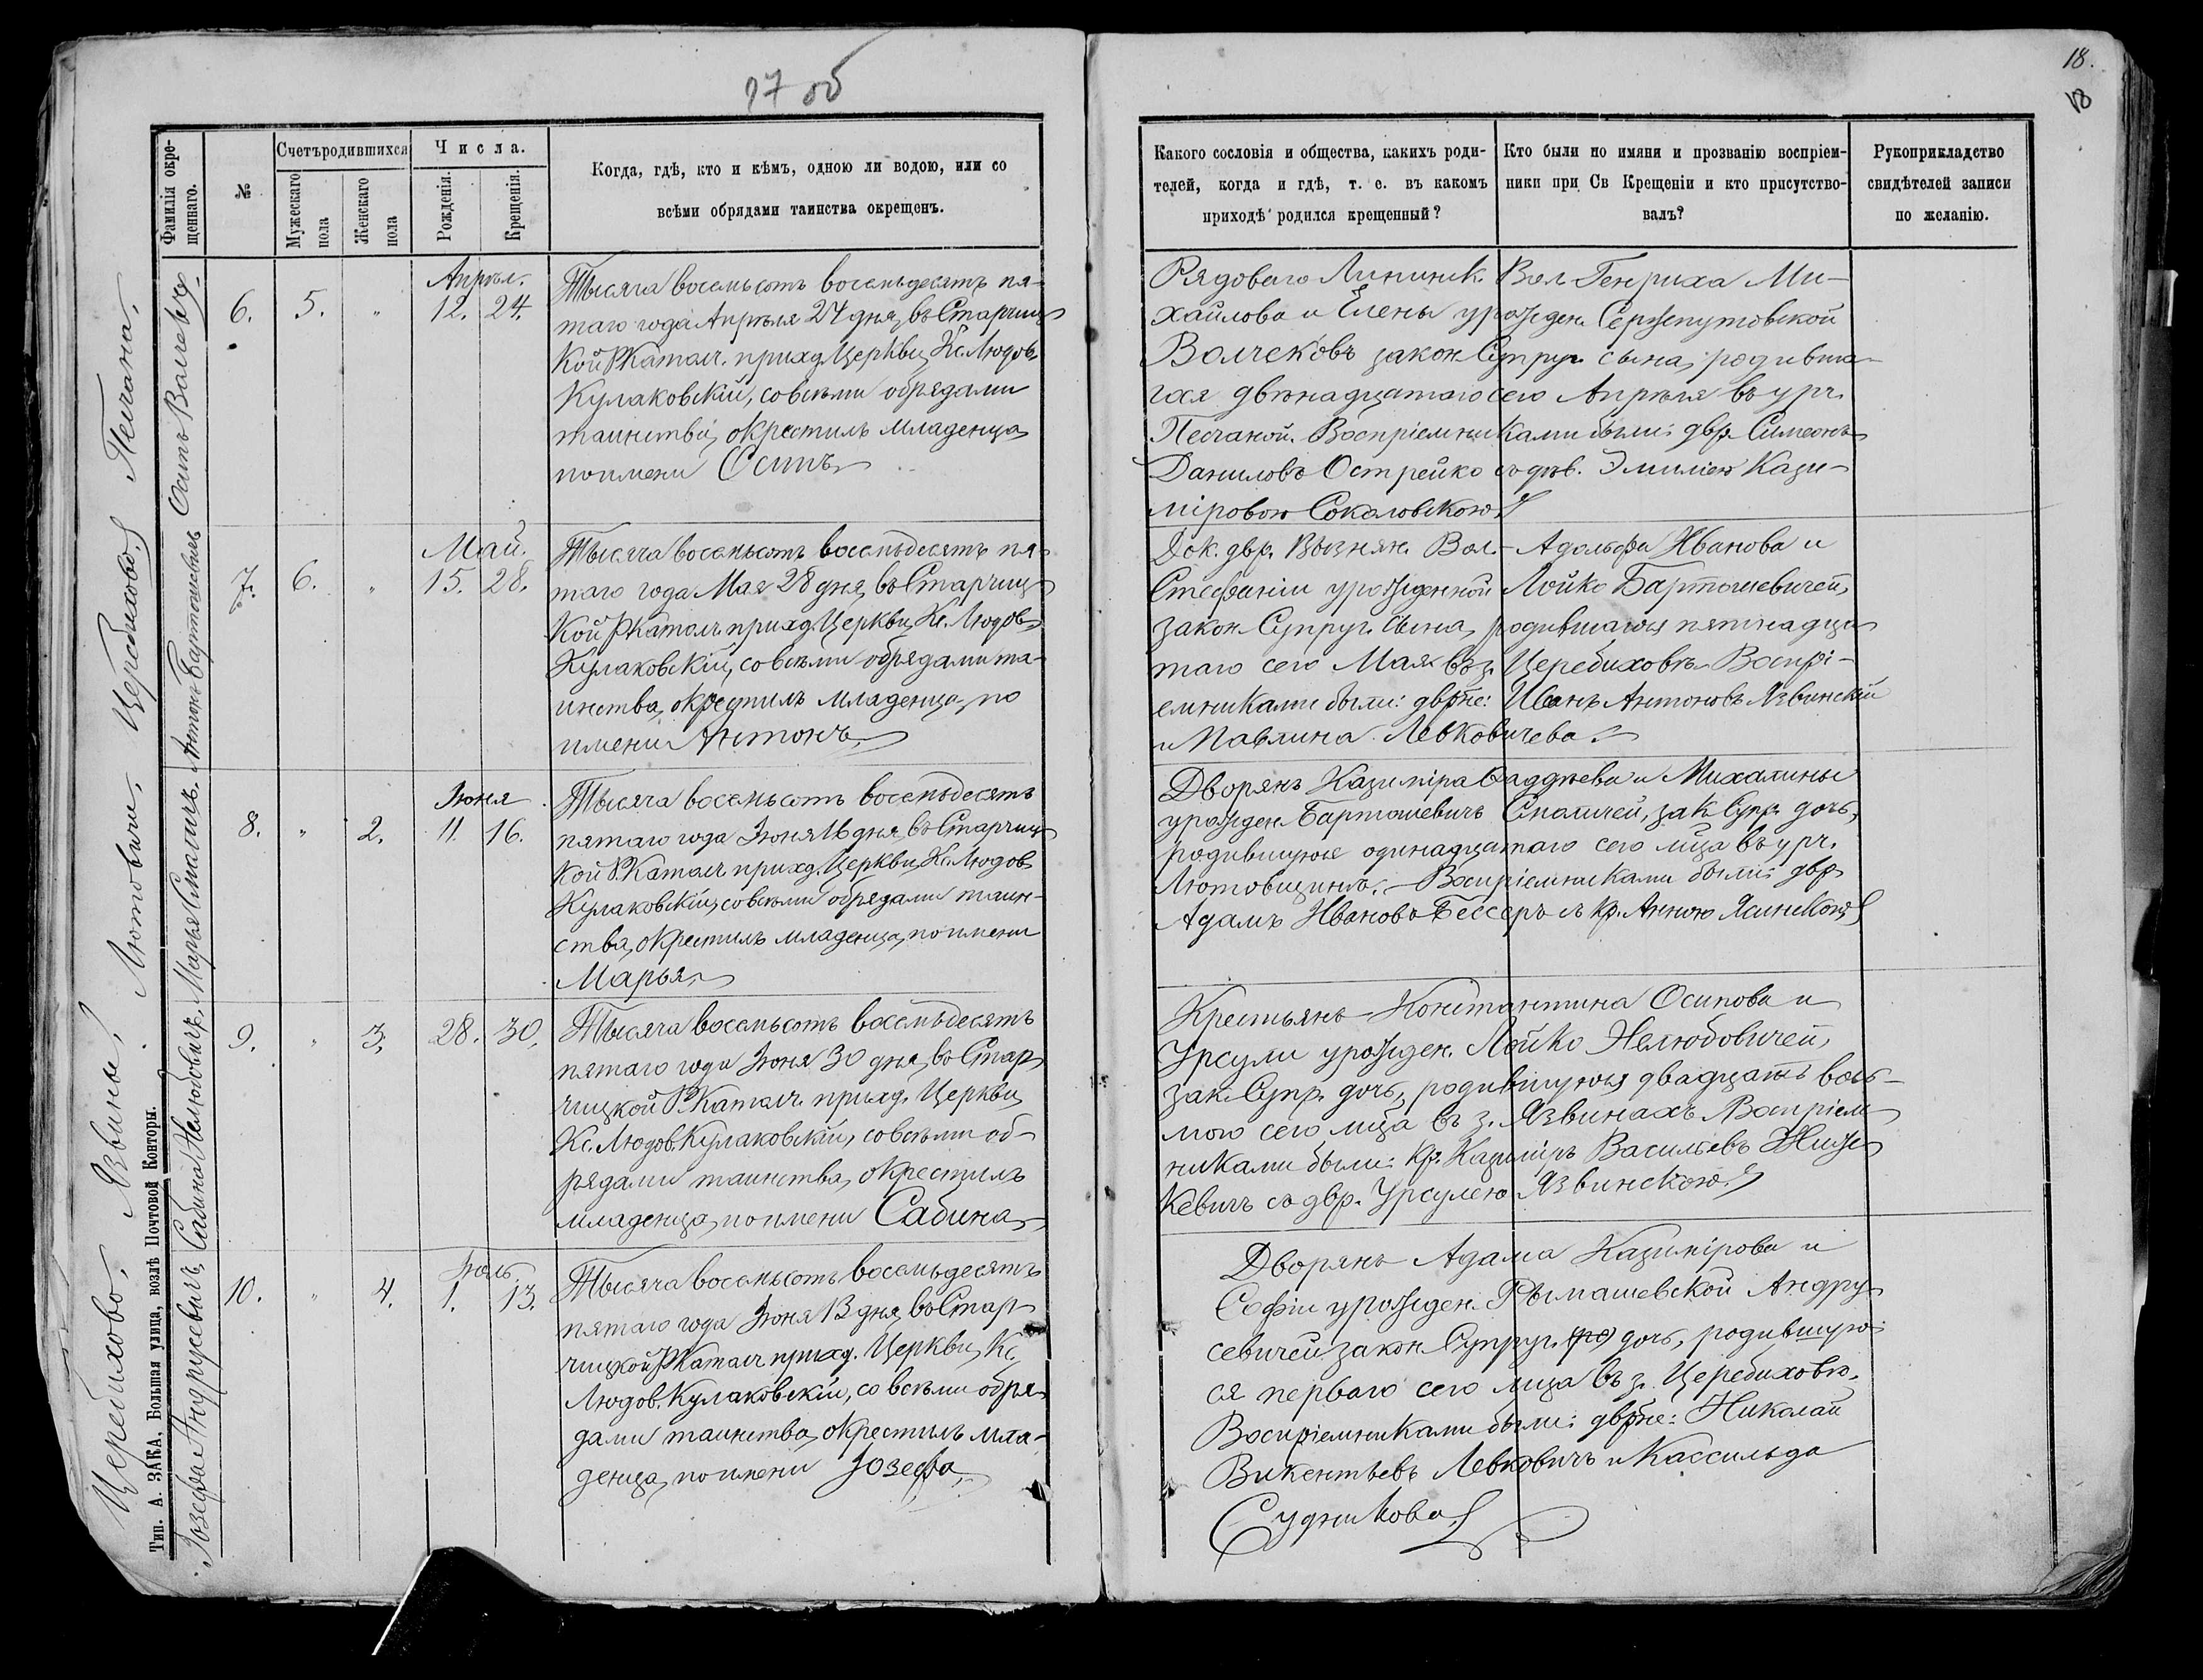 17 об
18.
18
Фамилія окре-
щеннаго.
№
Счетъ родившихся
Мужескаго
пола
Женскаго
пола
Числа.
Рожденія.
Крещенія.
Когда, гдѣ, кто и кѣмъ, одною ли водою, или со
всѣми обрядами таинства окрещенъ.
Какого сословія и общества, какихъ роди-
телей, когда и гдѣ, т. е. въ какомъ
приходѣ родился крещенный?
Кто были по имяни и прозванію воспріем-
ники при Св Крещеніи и кто присутство-
валъ?
Рукоприкладство
свидѣтелей записи
по желанію.
Песчана.
Осипъ
6. 5. „ Апрѣл. 12. 24.
Тысяча восемьсотъ восемьдесятъ пя-
таго года Апрѣля 24 дня, въ Старчиц-
кой Р Катол. приход. Церкви, Кс. Людов.
Кулаковскій, со всѣми обрядами
таинства, окрестилъ младенца
по имени Осипъ
Рядоваго Вол. Генриха Ми-
хайлова и Елены урожден. Сержпутовской
Волчековъ закон. Супруг. сына, родивша-
гося двѣнадцатаго сего Апрѣля въ урч.
Песчаной. Воспріемниками были: двр. Симеонъ
Даниловъ Острейко съ дѣв. Эмиліею Кази-
міровою Соколовскою.
Церебихово.
Антонъ Бартошевичъ
7. 6. „ Май. 15. 28.
Тысяча восемьсотъ восемьдесятъ пя-
таго года Мая 28 дня, въ Старчиц-
кой Р Катол. приход. Церкви, Кс. Людов.
Кулаковскій, со всѣми обрядами та-
инства, окрестилъ младенца, по
имени Антонъ
Док. двр. Вызнян. Вол. Адольфа Иванова и
Стефаніи урожденной Лойко Бартошевичей,
закон. Супруг. сына, родившагося пятнадца-
таго сего Мая въ з. Церебиховѣ. Воспрі-
емниками были: двр̃не: Иванъ Антоновъ Язвинскій
и Павлина Левковичева.
Лютовичи.
Марья Спаличъ.
8. „ 2. Іюня 11. 16.
Тысяча восемьсотъ восемьдесятъ
пятаго года Іюня 16 дня, въ Старчиц-
кой Р. Катол. приход. Церкви, Кс. Людов.
Кулаковскій, со всѣми обрядами таин-
ства, окрестилъ младенца, по имени
Марья.
Дворянъ Казиміра Фаддѣева и Михалины
урожден. Бартошевичъ Спаличей, зак. Супр. дочь,
родившуюся одинадцатаго сего мѣца въ урч.
Лютовщина. Воспріемниками были: двр.
Адамъ Ивановъ Бессеръ съ кр. Анною Ясинскою
Язвины.
Сабина Нелюбовичъ.
9. „ 3. 28. 30.
Тысяча восемьсотъ восемьдесятъ
пятаго года Іюня 30 дня, въ Стар-
чицкой Р. Катол. приход. Церкви,
Кс. Людов. Кулаковскій, со всѣми об-
рядами таинства, окрестилъ
младенца, по имени Сабина
Крестьянъ Константина Осипова и
Урсули урожден. Лойко Нелюбовичей,
зак. Супр. дочь, родившуюся двадцать вось-
мого сего мѣца въ з. Язвинахъ. Воспріем-
никами были: кр. Казиміръ Васильевъ
кевичъ съ двр. Урсулею Язвинскою.
Церебихово.
Іозефа Андрусевичъ
10. „ 4. Іюль 1. 13.
Тысяча восемьсотъ восемьдесятъ
пятаго года Іюня 13 дня, въ Стар-
чицкой Р Катол. приход. Церкви, Кс.
Людов. Кулаковскій, со всѣми обря-
дами таинства, окрестилъ мла-
денца, по имени Іозефа,
Дворянъ Адама Казимірова и
Софіи урожден. Рымашевской Андру-
севичей закон. Супруг. дочь, родившую-
ся перваго сего мѣца въ з. Церебиховѣ.
Воспріемниками были: двр̃не: Николай
Викентьевъ Левковичъ и Кассильда
Судникова
Тип. А. ЗАКА, Большая улица, возлѣ Почтовой Конторы.